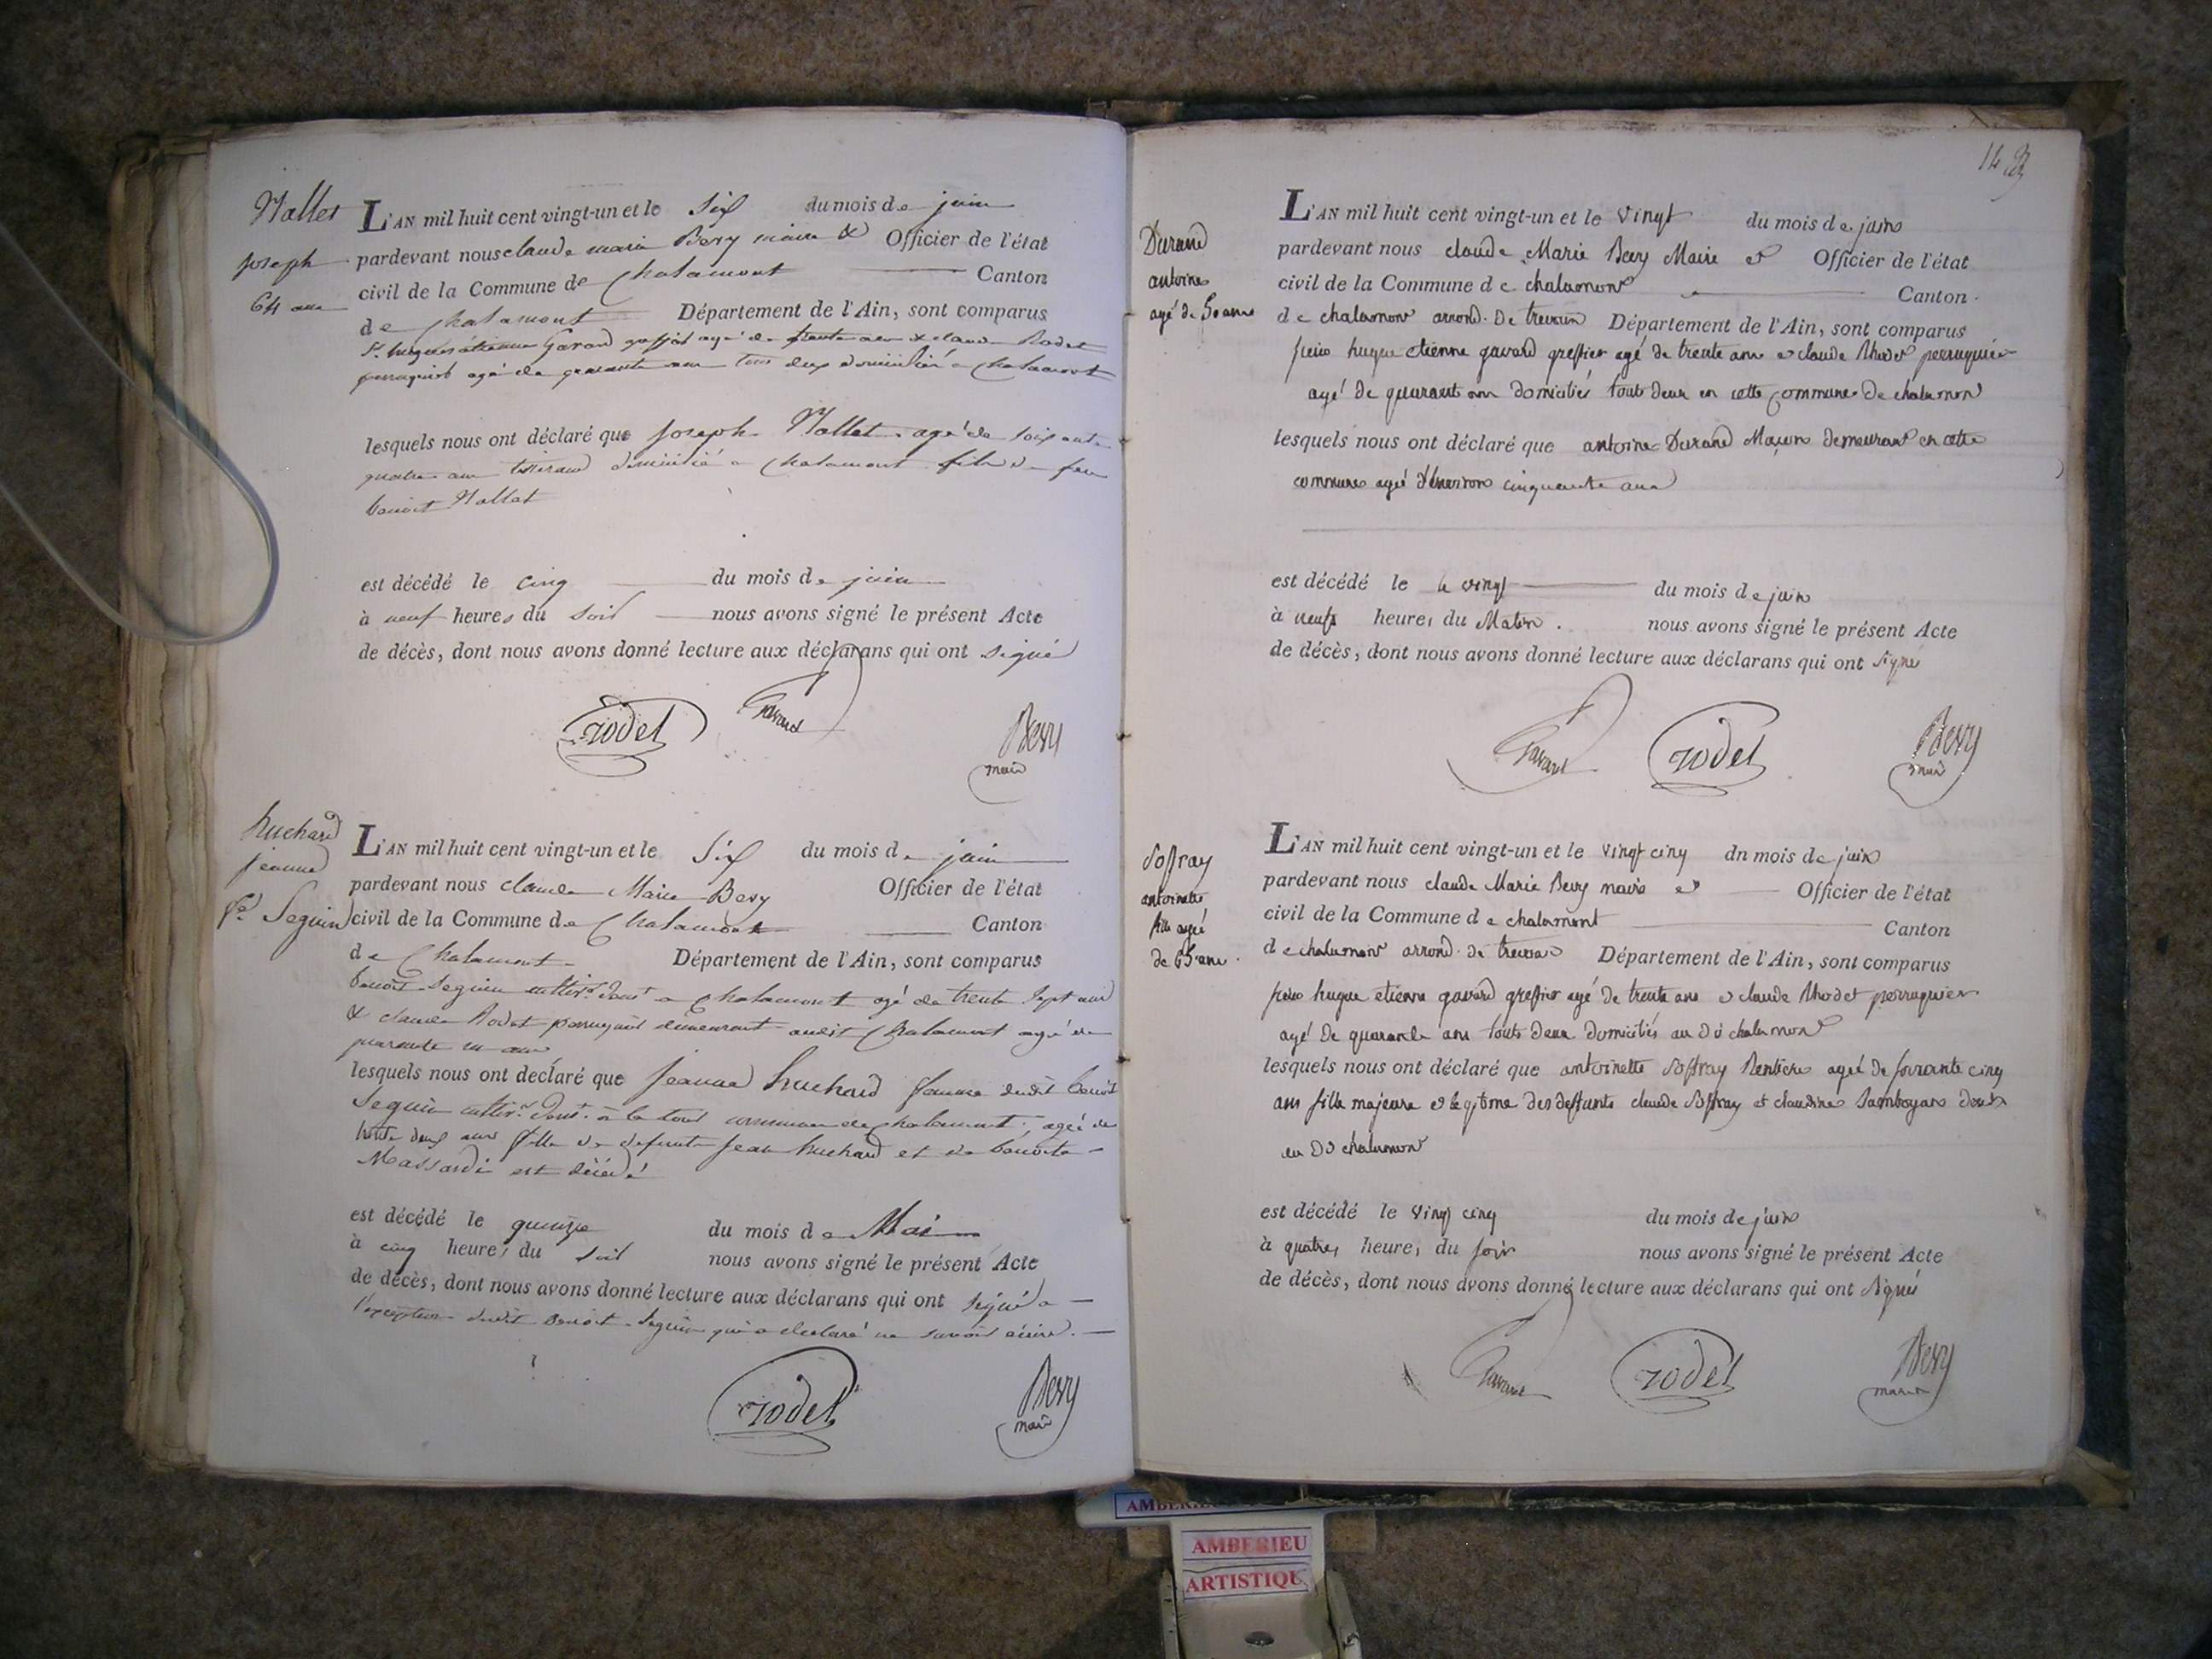 Joseph
64 ans
L'AN mil huit cent vingt-un et le Six du mois de juin
pardevant nous claude marie Bevy maire & Officier de l'état
civil de la Commune de Chalamont Canton
de Chalamont Département de l'Ain, sont comparus
étienne Gavard agé de trente ans & claude Rodet
agé de quarante ans tous deux domiciliés a Chalamont
lesquels nous ont déclaré que Joseph agé de soixante
quatre ans tisserand domicilié a Chalamont fils de feu
benoit
est décédé le cinq du mois de juin
à neuf heures du soir nous avons signé le présent Acte
de décès, dont nous avons donné lecture aux déclarans qui ont signé
Rodet Gavard Bevy
maire
huchard
jeanne
fe. Seguin
L'AN mil huit cent vingt-un et le Six du mois de juin
pardevant nous claude Marie Bevy Officier de l'état
civil de la Commune de Chalamont Canton
de Chalamont Département de l'Ain, sont comparus
benoit Seguin a Chalamont agé de trente sept ans
& claude Rodet demeurant audit Chalamont agé de
quarante un ans
lesquels nous ont déclaré que jeanne huchard femme dudit benoit
Seguin à la commune de chalamont, agée de
deux ans fille de defunt jean huchard et de benoite
est décédé
est décédé le quinze du mois de Mai
à cinq heures du soir nous avons signé le présent Acte
de décès, dont nous avons donné lecture aux déclarans qui ont signé a
l'exception dudit benoit Seguin qui a declaré ne savoir écrire.
Rodet Bevy
maire
14
Durand
antoine
agé de 50 ans
L'AN mil huit cent vingt-un et le vingt du mois de juin
pardevant nous claude Marie Bevy Maire et Officier de l'état
civil de la Commune de chalamont Canton
de chalamont arrond. De trevoux Département de l'Ain, sont comparus
hugue etienne gavard greffier agé de trente ans et claude Rhodet perruquier
agé de quarante ans domiciliés tout deux en cette commune De chalamont
lesquels nous ont déclaré que antoine Durand Maçon demeurant en cette
commune agé d'environ cinquante ans
est décédé le le vingt du mois de juin
à neufs heures du Matin. nous avons signé le présent Acte
de décès, dont nous avons donné lecture aux déclarans qui ont signé
Gavard Rodet Bevy
maire
Soffray
antoinette
fille agée
de 65 ans.
L'AN mil huit cent vingt-un et le vingt cinq dn mois de juin
pardevant nous claude Marie Bevy maire et Officier de l'état
civil de la Commune de chalamont Canton
de chalamont arrond. de trevoux Département de l'Ain, sont comparus
hugue etienne gavard greffier agé de trente ans et claude Rhodet perruquier
agé de quarante ans touts deux domiciliés au Dt chalamont
lesquels nous ont déclaré que antoinette Soffray Rentiere agée de soixante cinq
ans fille majeure et legitime des deffunts claude Soffray et claudine
au Dt chalamont
est décédé le vingt cinq du mois de juin
à quatres heures du soir nous avons signé le présent Acte
de décès, dont nous avons donné lecture aux déclarans qui ont signés
Gavard Rodet Bevy
maire
AMBERIEU
ARTISTIQU